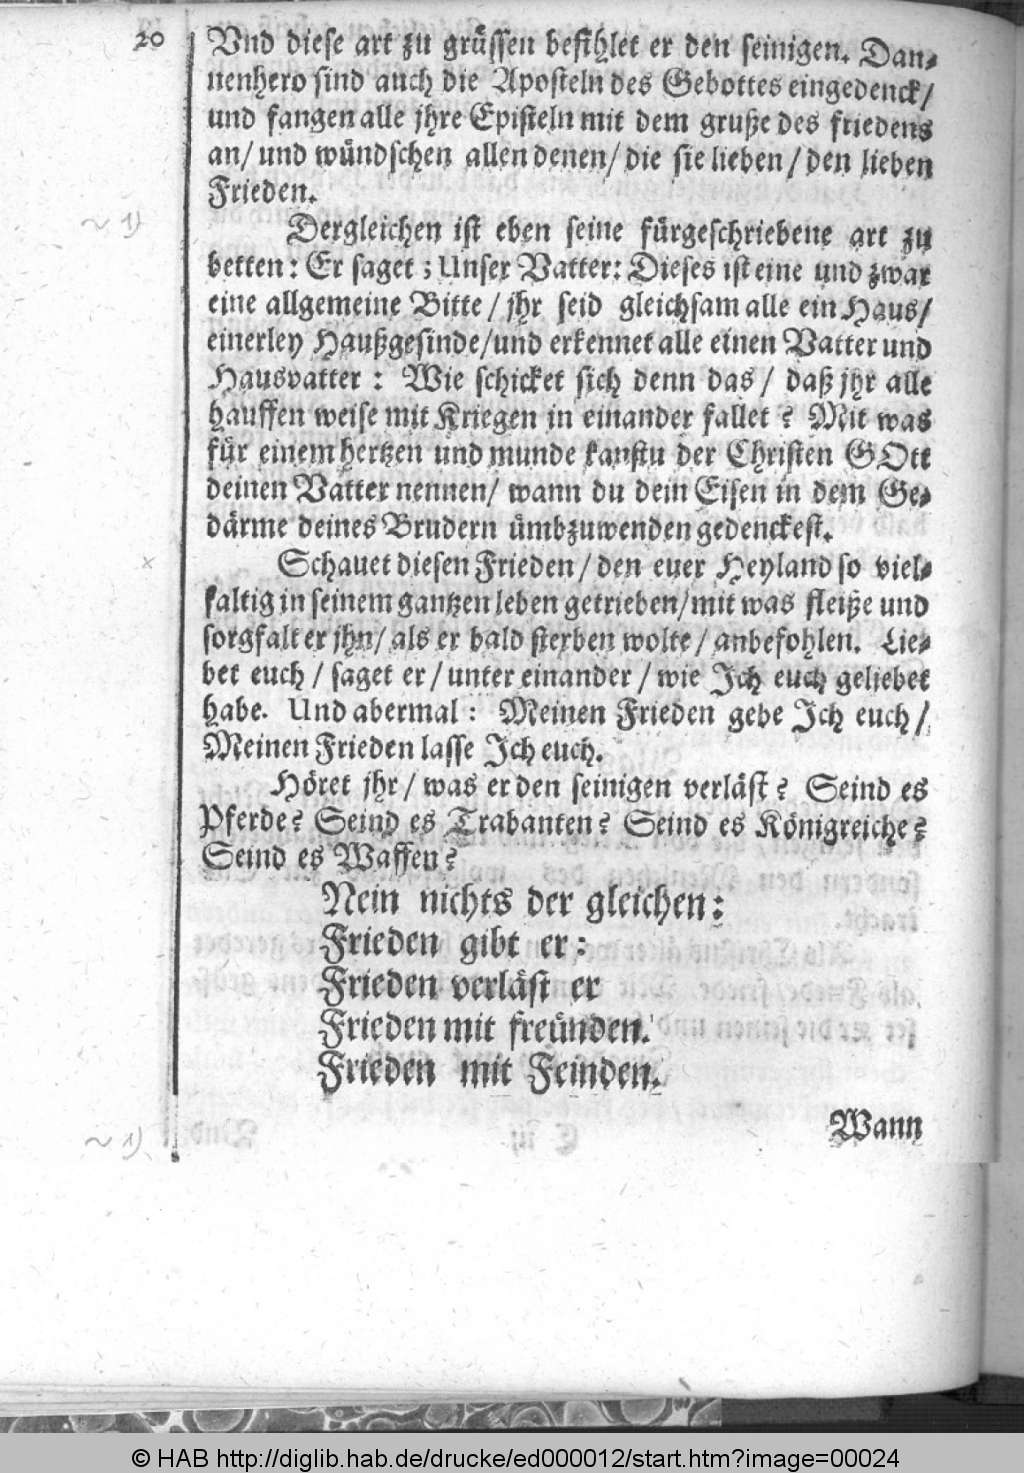 20
Vnd diese art zu grüssen befihlet er den seinigen. Dan-
nenhero sind auch die Aposteln des Gebottes eingedenck/
und fangen alle jhre Episteln mit dem gruße des friedens
an/ und wündschen allen denen/ die sie lieben/ den lieben
Frieden.
~ 1)
Dergleichen ist eben seine fürgeschriebene art zu
betten: Er saget; Unser Vatter: Dieses ist eine und zwar
eine allgemeine Bitte/ jhr seid gleichsam alle ein Haus/
einerley Haußgesinde/und erkennet alle einen Vatter und
Hausvatter: Wie schicket sich denn das/ daß jhr alle
hauffen weise mit Kriegen in einander fallet? Mit was
für einem hertzen und munde kanstu der Christen GOtt
deinen Vatter nennen/ wann du dein Eisen in dem Ge-
därme deines Brudern ümbzuwenden gedenckest.
x
Schauet diesen Frieden/ den euer Heyland so viel-
faltig in seinem gantzen leben getrieben/mit was fleiße und
sorgfalt er jhn/ als er bald sterben wolte/ anbefohlen. Lie-
bet euch/ saget er/ unter einander/ wie Ich euch geliebet
habe. Und abermal: Meinen Frieden gebe Ich euch/
Meinen Frieden lasse Ich euch.
Höret jhr/ was er den seinigen verläst? Seind es
Pferde? Seind es Trabanten? Seind es Königreiche?
Seind es Waffen?
Nein nichts der gleichen:
Frieden gibt er:
Frieden verläst er
Frieden mit freünden.
Frieden mit Feinden.
Wann
~ 1)
© HAB http://diglib.hab.de/drucke/ed000012/start.htm?image=00024